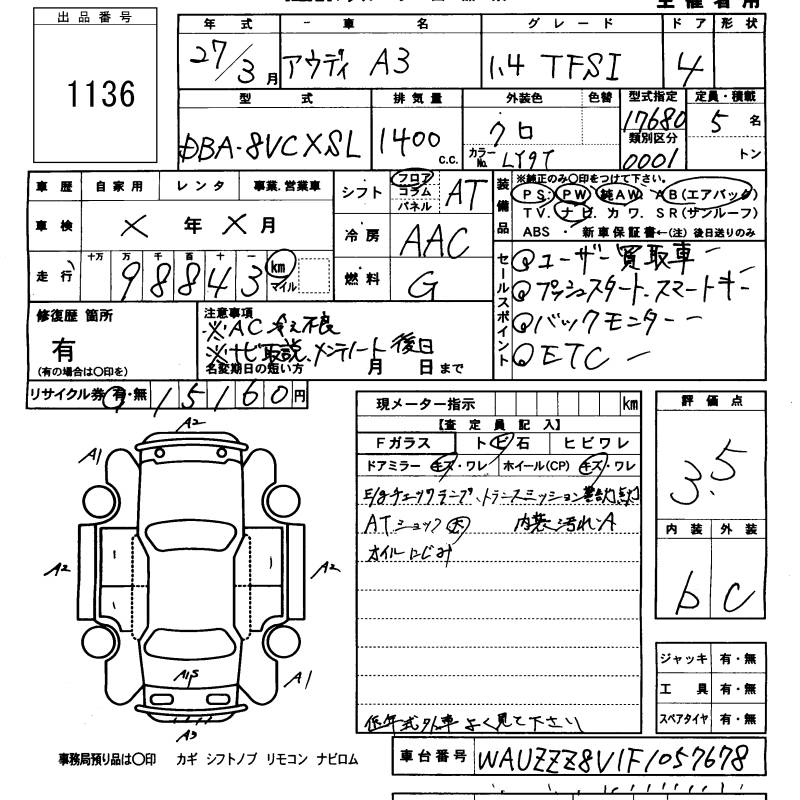 出品番号
1136
年式 車名 グレード ドア 形状
27/3月 アウディ A3 1.4 TFSI 4
型式 排気量 外装色 色替 型式指定 定員・積載
DBA-8VCXSL 1400 c.c. クロ 17680 5 名
カラーNo. LY9T 類別区分 0001 トン
車歴 自家用 レンタ 事業.営業車
車検 × 年 × 月
走行 十万 万 千 百 十 一
98843 km マイル
シフト フロア コラム パネル AT
冷房 AAC
燃料 G
装備品
※純正のみ○印をつけて下さい。
PS. PW 純AW. AB(エアバック)
TV. ナビ. カワ. SR(サンルーフ)
ABS ・ 新車保証書←(注) 後日送りのみ
セールスポイント
ユーザー買取車
プッシュスタート.スマートキー
バックモニター
ETC
修復歴 箇所
有
(有の場合は○印を)
注意事項
※AC冷え不良
※ナビ取説、メンテノート後日
名変期日の短い方 月 日まで
リサイクル券 有・無 15160円
現メーター指示 km
【査定員記入】
Fガラス トビ石 ヒビワレ
ドアミラー キズ・ワレ ホイール(CP) キズ・ワレ
E/gチェックランプ、トランスミッション警告灯点灯
ATショック大 内装汚れA
オイルにじみ
低年式外車よく見て下さい
評価点
3.5
内装 外装
b C
ジャッキ 有・無
工具 有・無
スペアタイヤ 有・無
A2
A1
A2
A2
A1S
A1
A3
事務局預り品は○印 カギ シフトノブ リモコン ナビロム
車台番号 WAUZZZ8V1F1057678